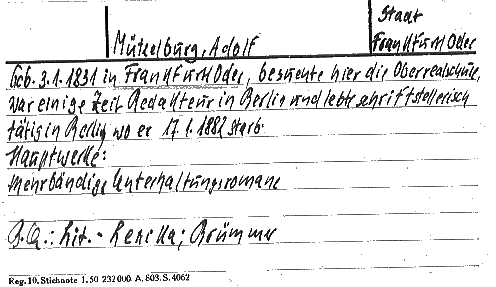 Stadt
Mützelburg, Adolf
Frankfurt Oder
Geb. 3.1.1831 in Frankfurt Oder, besuchte hier die Oberrealschule,
war einige Zeit Redakteur in Berlin und lebte schriftstellerisch
tätig in Berlin wo er 17.1.1882 starb.
Hauptwerke:
Mehrbändige Unterhaltungsromane
B.Q.: Lit.-Lexika; Brümmer
Reg. 10. Stichnote 1. 50 232 000. A. 803. S. 4062